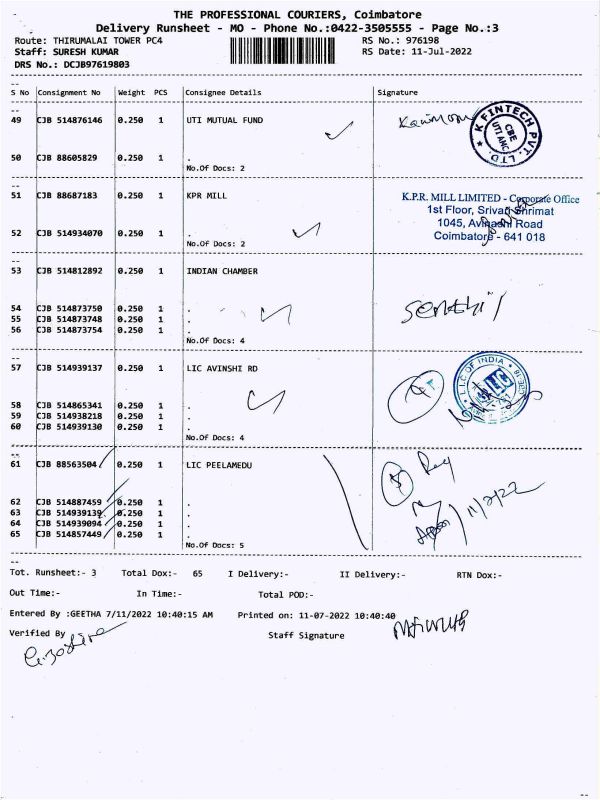 THE PROFESSIONAL COURIERS, Coimbatore
Delivery Runsheet - MO - Phone No.:0422-3505555 - Page No.:3
Route: THIRUMALAI TOWER PC4 RS No.: 976198
Staff: SURESH KUMAR RS Date: 11-Jul-2022
DRS No.: DCJB97619803
S No Consignment No Weight PCS Consignee Details Signature
49 CJB 514876146 0.250 1 UTI MUTUAL FUND
K FINTECH PVT. LTD.
CBE
UTI AMC
50 CJB 88605829 0.250 1 .
No.Of Docs: 2
51 CJB 88687183 0.250 1 KPR MILL
K.P.R. MILL LIMITED - Corporate Office
1st Floor, Srivari Shrimat
1045, Avinashi Road
Coimbatore - 641 018
52 CJB 514934070 0.250 1 .
No.Of Docs: 2
53 CJB 514812892 0.250 1 INDIAN CHAMBER
54 CJB 514873750 0.250 1 .
55 CJB 514873748 0.250 1 .
56 CJB 514873754 0.250 1 .
Senthil
No.Of Docs: 4
57 CJB 514939137 0.250 1 LIC AVINSHI RD
L.I.C OF INDIA
58 CJB 514865341 0.250 1 .
59 CJB 514938218 0.250 1 .
60 CJB 514939130 0.250 1 .
No.Of Docs: 4
61 CJB 88563504 0.250 1 LIC PEELAMEDU
5
62 CJB 514887459 0.250 1 .
63 CJB 514939139 0.250 1 .
64 CJB 514939094 0.250 1 .
65 CJB 514857449 0.250 1 .
11/7/22
No.Of Docs: 5
Tot. Runsheet:- 3 Total Dox:- 65 I Delivery:- II Delivery:- RTN Dox:-
Out Time:- In Time:- Total POD:-
Entered By :GEETHA 7/11/2022 10:40:15 AM Printed on: 11-07-2022 10:40:40
Verified By Staff Signature